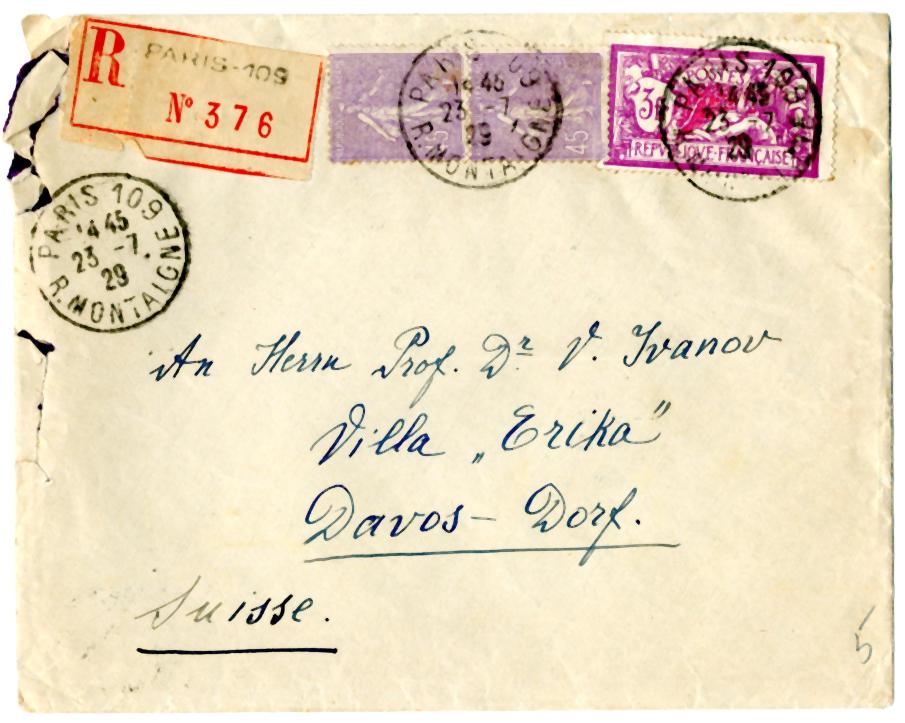 R PARIS-109
N° 376
45
45
POSTES
3F
REPVBLIQVE·FRANÇAISE
PARIS 109
14 45
23 -7
29
R. MONTAIGNE
PARIS 109
14 45
23 -7
29
PARIS 109
14 45
23 -7.
29
R. MONTAIGNE
An Herrn Prof. Dr V. Ivanov
Villa „Erika"
Davos - Dorf.
Suisse.
5